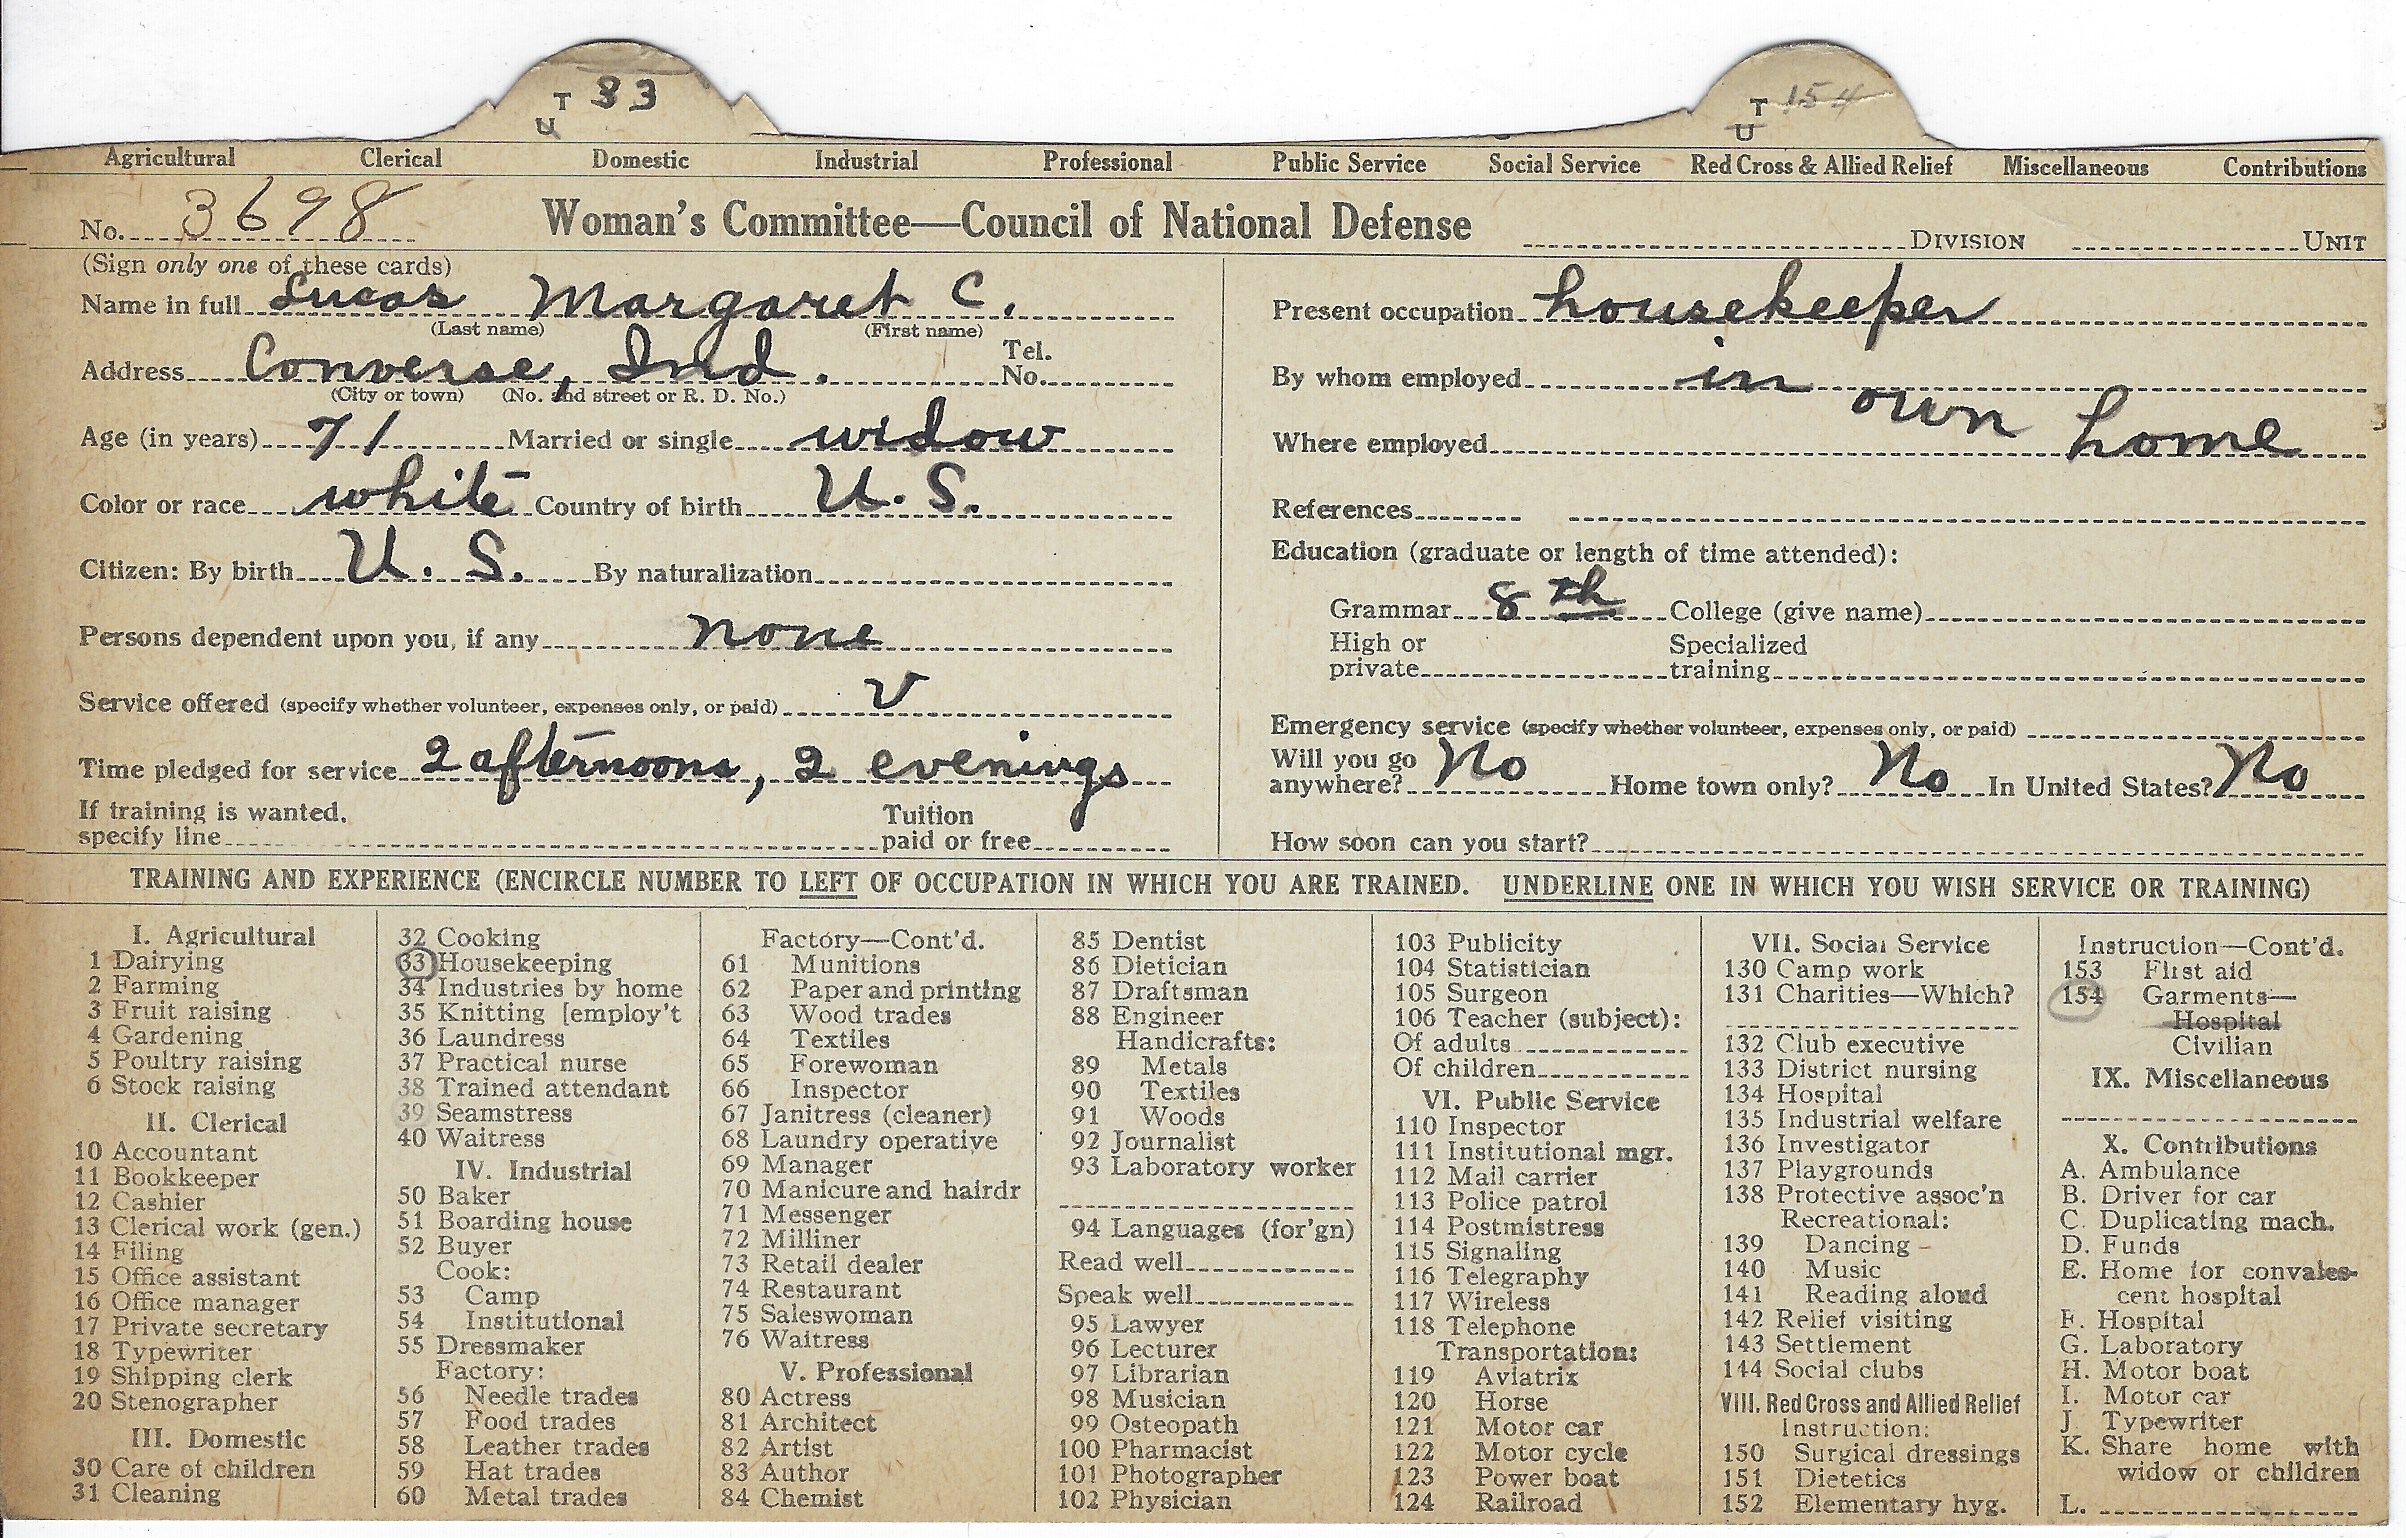 T 33
U
T 154
U
Agricultural Clerical Domestic Industrial Professional Public Service Social Service Red Cross & Allied Relief Miscellaneous Contributions
No. 3698 Woman's Committee—Council of National Defense DIVISION UNIT
(Sign only one of these cards)
Name in full Lucas Margaret C.
(Last name) (First name)
Address Converse, Ind. Tel. No.
(City or town) (No. and street or R. D. No.)
Age (in years) 71 Married or single widow
Color or race white Country of birth U. S.
Citizen: By birth U. S. By naturalization
Persons dependent upon you, if any none
Service offered (specify whether volunteer, expenses only, or paid) V
Time pledged for service 2 afternoons, 2 evenings
If training is wanted, Tuition
specify line paid or free
Present occupation housekeeper
By whom employed in
own
Where employed home
References
Education (graduate or length of time attended):
Grammar 8th College (give name)
High or Specialized
private training
Emergency service (specify whether volunteer, expenses only, or paid)
Will you go
anywhere? No Home town only? No In United States? No
How soon can you start?
TRAINING AND EXPERIENCE (ENCIRCLE NUMBER TO LEFT OF OCCUPATION IN WHICH YOU ARE TRAINED. UNDERLINE ONE IN WHICH YOU WISH SERVICE OR TRAINING)
I. Agricultural
1 Dairying
2 Farming
3 Fruit raising
4 Gardening
5 Poultry raising
6 Stock raising
II. Clerical
10 Accountant
11 Bookkeeper
12 Cashier
13 Clerical work (gen.)
14 Filing
15 Office assistant
16 Office manager
17 Private secretary
18 Typewriter
19 Shipping clerk
20 Stenographer
III. Domestic
30 Care of children
31 Cleaning
32 Cooking
33 Housekeeping
34 Industries by home
35 Knitting [employ't
36 Laundress
37 Practical nurse
38 Trained attendant
39 Seamstress
40 Waitress
IV. Industrial
50 Baker
51 Boarding house
52 Buyer
Cook:
53 Camp
54 Institutional
55 Dressmaker
Factory:
56 Needle trades
57 Food trades
58 Leather trades
59 Hat trades
60 Metal trades
Factory—Cont'd.
61 Munitions
62 Paper and printing
63 Wood trades
64 Textiles
65 Forewoman
66 Inspector
67 Janitress (cleaner)
68 Laundry operative
69 Manager
70 Manicure and hairdr
71 Messenger
72 Milliner
73 Retail dealer
74 Restaurant
75 Saleswoman
76 Waitress
V. Professional
80 Actress
81 Architect
82 Artist
83 Author
84 Chemist
85 Dentist
86 Dietician
87 Draftsman
88 Engineer
Handicrafts:
89 Metals
90 Textiles
91 Woods
92 Journalist
93 Laboratory worker
94 Languages (for'gn)
Read well
Speak well
95 Lawyer
96 Lecturer
97 Librarian
98 Musician
99 Osteopath
100 Pharmacist
101 Photographer
102 Physician
103 Publicity
104 Statistician
105 Surgeon
106 Teacher (subject):
Of adults
Of children
VI. Public Service
110 Inspector
111 Institutional mgr.
112 Mail carrier
113 Police patrol
114 Postmistress
115 Signaling
116 Telegraphy
117 Wireless
118 Telephone
Transportation:
119 Aviatrix
120 Horse
121 Motor car
122 Motor cycle
123 Power boat
124 Railroad
VII. Social Service
130 Camp work
131 Charities—Which?
132 Club executive
133 District nursing
134 Hospital
135 Industrial welfare
136 Investigator
137 Playgrounds
138 Protective assoc'n
Recreational:
139 Dancing
140 Music
141 Reading aloud
142 Relief visiting
143 Settlement
144 Social clubs
VIII. Red Cross and Allied Relief
Instruction:
150 Surgical dressings
151 Dietetics
152 Elementary hyg.
Instruction—Cont'd.
153 First aid
154 Garments—
Hospital
Civilian
IX. Miscellaneous
X. Contributions
A. Ambulance
B. Driver for car
C. Duplicating mach.
D. Funds
E. Home for convales-
cent hospital
F. Hospital
G. Laboratory
H. Motor boat
I. Motor car
J. Typewriter
K. Share home with
widow or children
L.